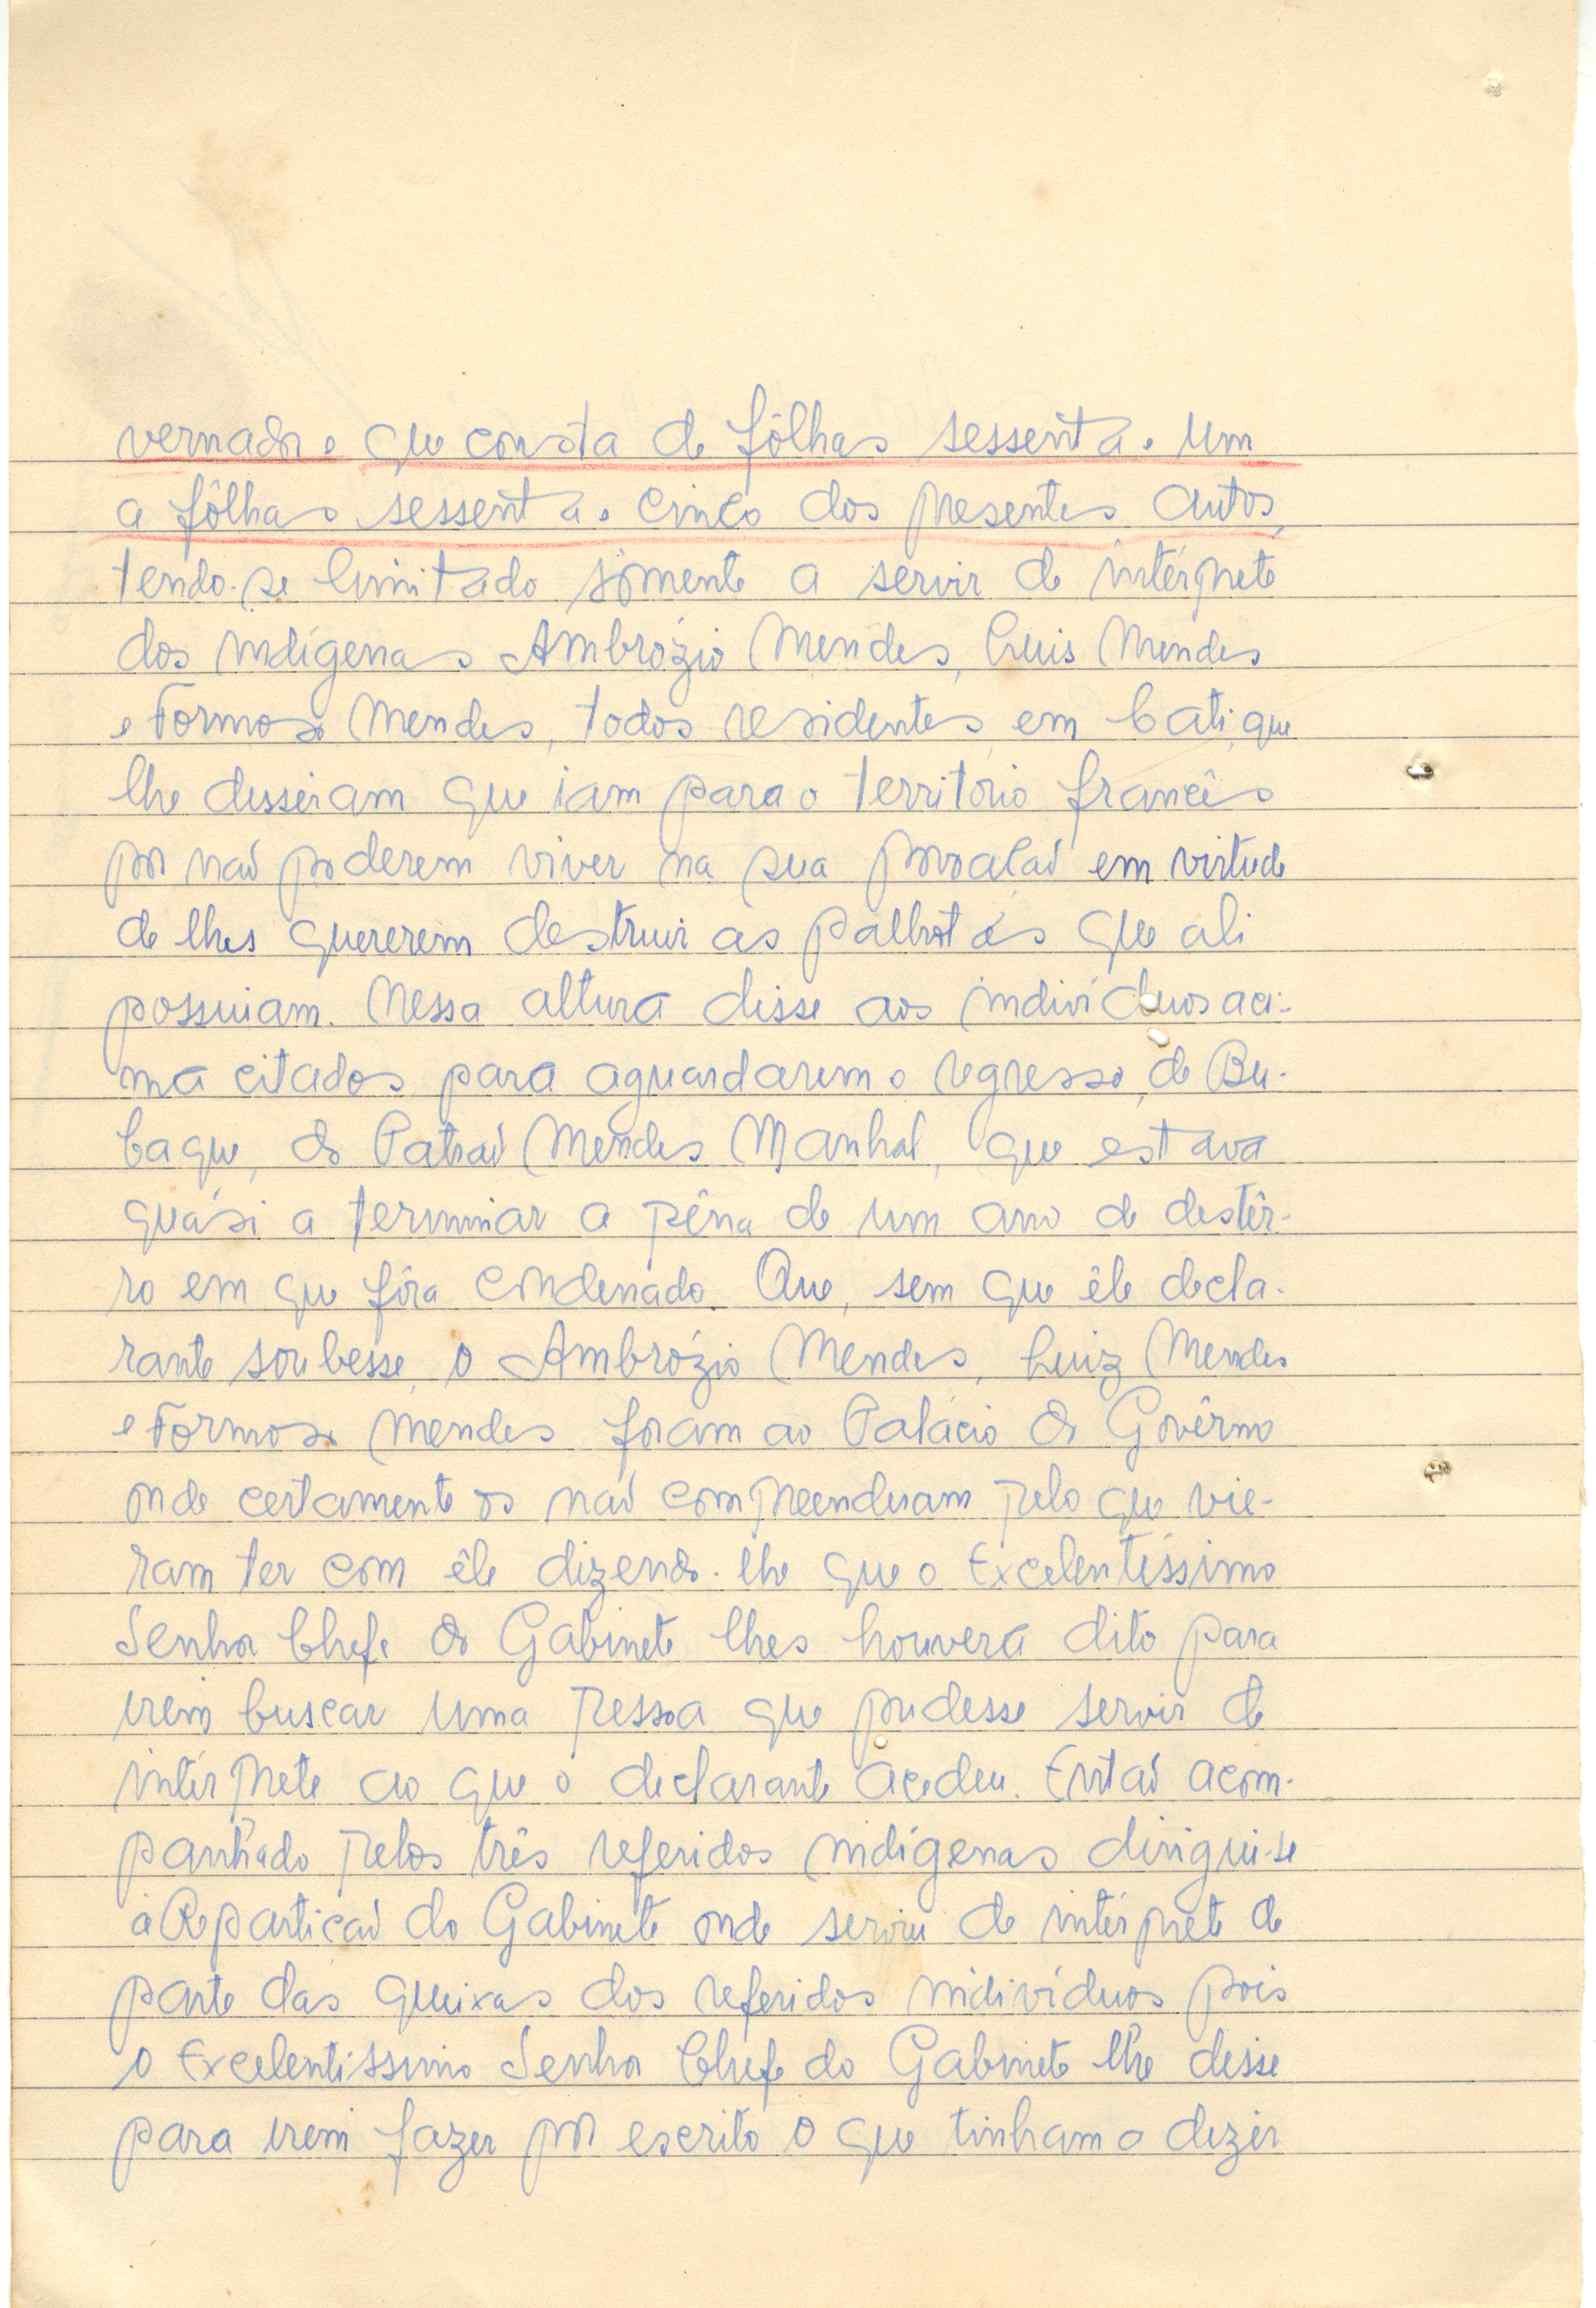 vernador e que consta de fôlhas sessenta e um
a fôlhas sessenta e cinco dos presentes autos,
tendo-se limitado sómente a servir de intérprete
dos indígenas Ambrózio Mendes, Luis Mendes
e Formoso Mendes, todos residentes em Cati, que
lhe disseram que iam para o território francês
por não poderem viver na sua povoação em virtude
de lhes quererem destruir as palhotas que ali
possuiam. Nessa altura disse aos indivíduos aci-
ma citados para aguardarem o regresso, de Bu-
baque, do Patrão Mendes Manhal, que estava
quási a terminar a pêna de um ano de destêr-
ro em que fôra condenado. Que, sem que êle decla-
rante soubesse, o Ambrózio Mendes, Luiz Mendes
e Formoso Mendes foram ao Palácio do Govêrno
onde certamente os não compreenderam pelo que vie-
ram ter com êle dizendo-lhe que o Excelentíssimo
Senhor Chefe do Gabinete lhes houvera dito para
irem buscar uma pessoa que pudesse servir de
intérprete ao que o declarante acedeu. Então acom-
panhado pelos três referidos indígenas dirigui-se
à Repartição do Gabinete onde serviu de intérprete de
parte das queixas dos referidos indivíduos pois
o Excelentíssimo Senhor Chefe do Gabinete lhe disse
para irem fazer por escrito o que tinham a dizer